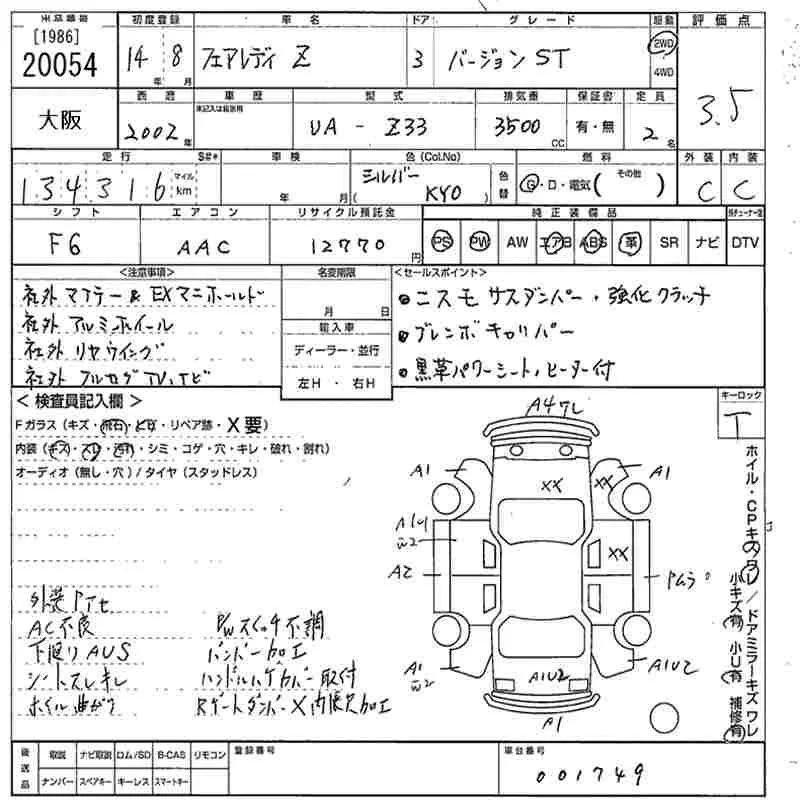 [1986]
20054
初度登録 車名 ドア グレード 駆動 評価点
14年 8月 フェアレディ Z 3 バージョン ST 2WD 4WD 3.5
大阪
西暦 車歴 型式 排気量 保証書 定員
2002年 未記入は自家用 UA - Z33 3500cc 有・無 2名
走行 S#* 車検 色(Col.No) 燃料 外装 内装
134316 マイル km 年 月 シルバー ( KY0 ) 色替 G・D・電気( その他 ) C C
シフト エアコン リサイクル預託金 純正装備品
F6 AAC 12770円 PS PW AW エアB ABS 革 SR ナビ DTV
<注意事項> 名変期限 <セールスポイント>
社外 マフラー & EXマニホールド
社外 アルミホイール
社外 リヤウイング
社外 フルセグTV,ナビ
月 日
輸入車
ディーラー・並行
左H ・ 右H
・ニスモ サスダンパー・強化クラッチ
・ブレンボキャリパー
・黒革パワーシート,ヒーター付
<検査員記入欄> キーロック
Fガラス(キズ・飛石・ヒビ・リペア跡・X要) T
内装(キズ・スレ・汚れ・シミ・コゲ・穴・キレ・破れ・割れ)
オーディオ(無し・穴)/タイヤ(スタッドレス)
ホイル・CPキズ・ワレ/ドアミラーキズ ワレ
小キズ有 小U有 補修有
A4ワレ
A1 XX XX A1
A1U W2 XX
A2 Pムラ
A1 W2 A1U2 A1U2
A1
外装Pアセ
AC不良
下廻りAUS
シートスレキレ
ホイル曲がり
P/Wスイッチ不調
バンパー加工
ハンドルハゲカバー取付
RゲートダンパーX内張欠加工
後送品 取説 ナビ取説 ロム/SD B-CAS リモコン 登録番号 車台番号
ナンバー スペアキー キーレス スマートキー 001749